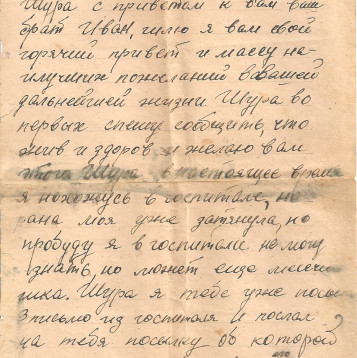 Шура с приветом к вам ваш
брат Иван, шлю я вам свой
горячий привет и массу на-
илучших пожеланий в вашей
дальнейшей жизни Шура во
первых спешу сообщить, что
жив и здоров и желаю вам
этого Шура в настоящее время
я нахожусь в госпитале, но
рана моя уже затянула, но
пробуду я в госпитали не могу
знать, но может еще месяч
ика. Шура я тебе уже посы
3 письмо из госпиталя и послал
на тебя посылку об которой